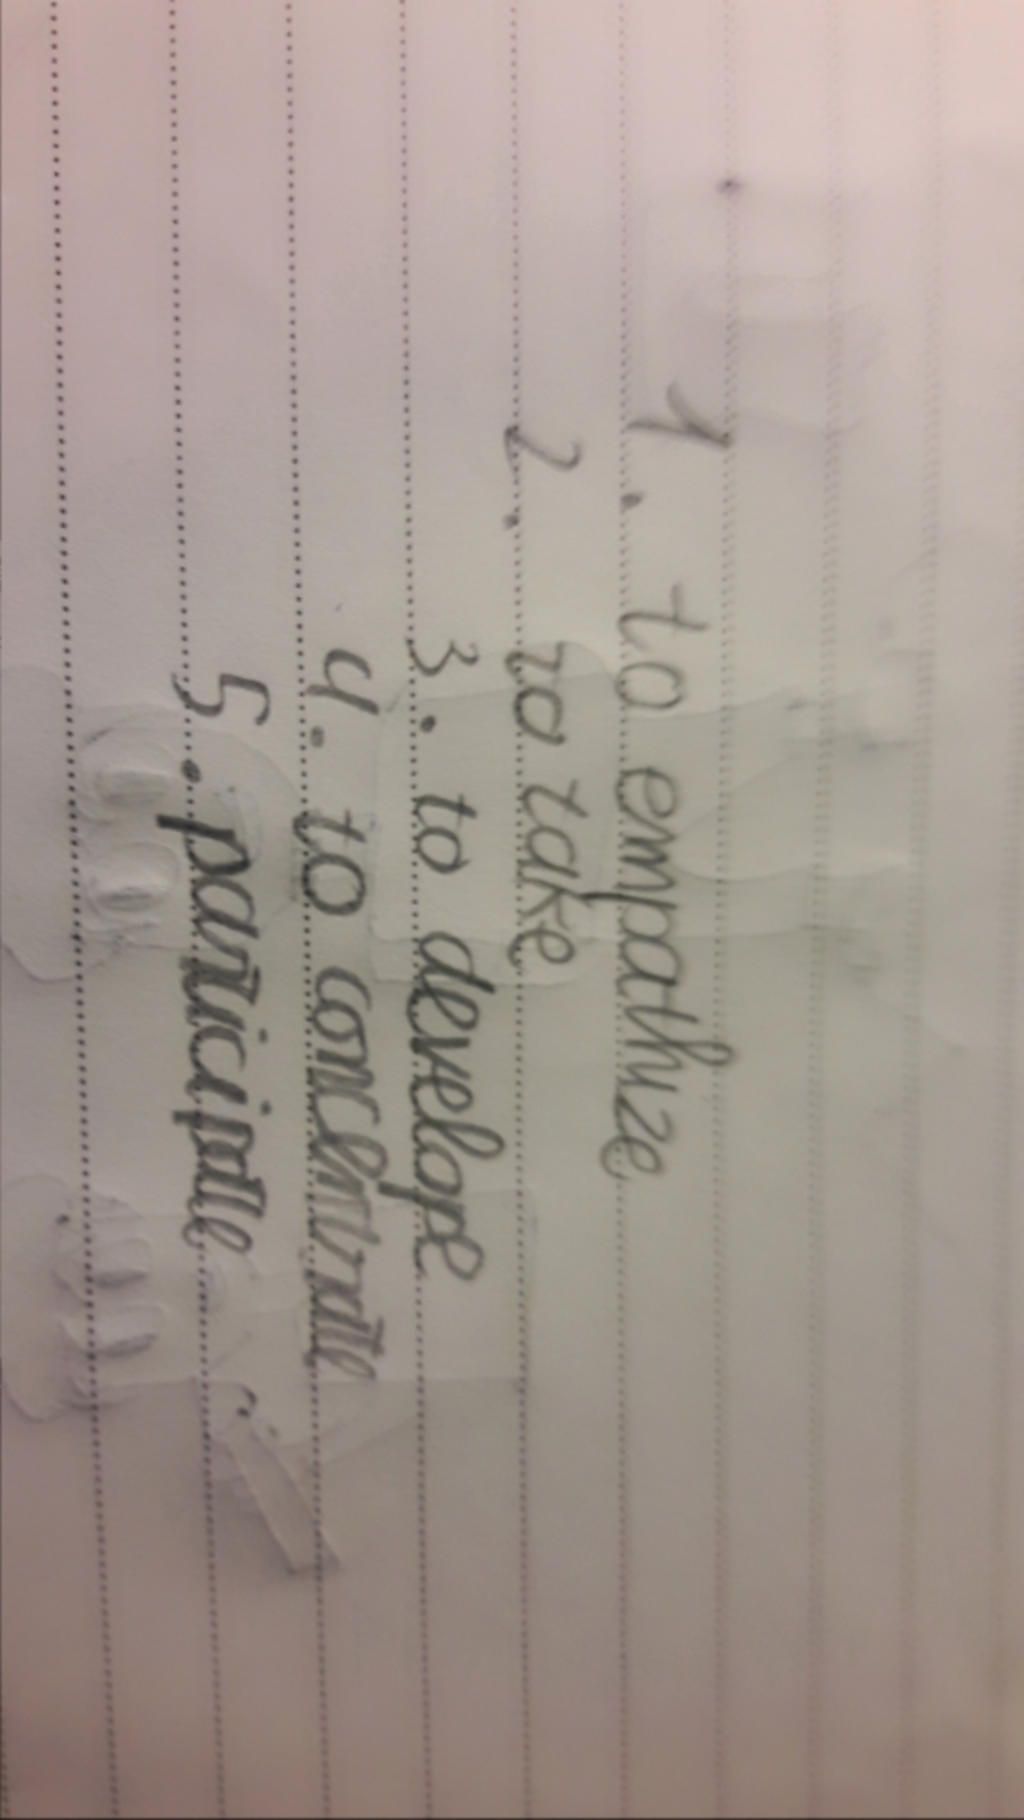 1. to empathize
2. to take
3. to develope
4. to concentrate
5. participate